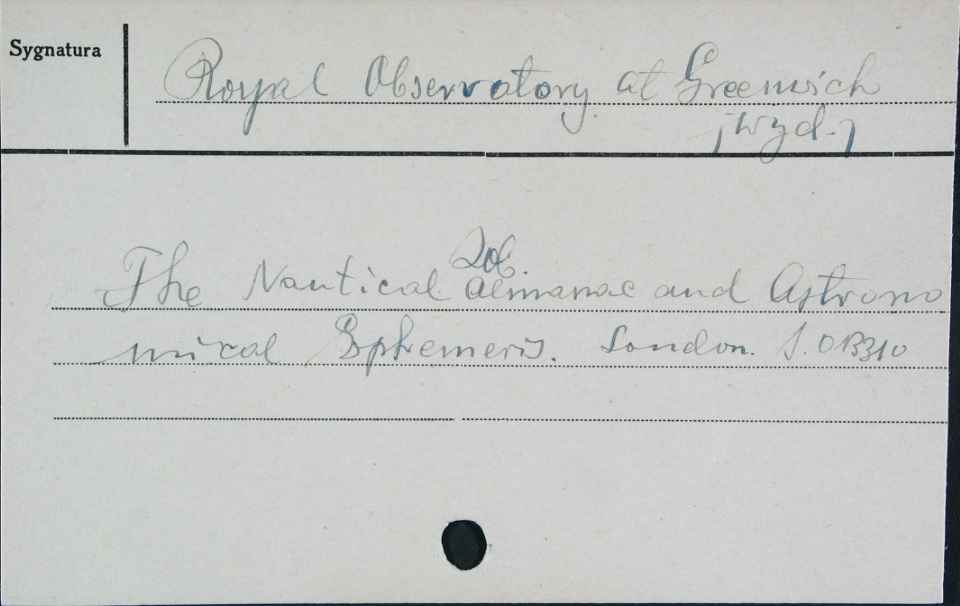 Sygnatura
Royal Observatory at Greenwich
[wyd.]
Zob.
The Nautical Almanac and Astrono
mical Ephemeris. London.